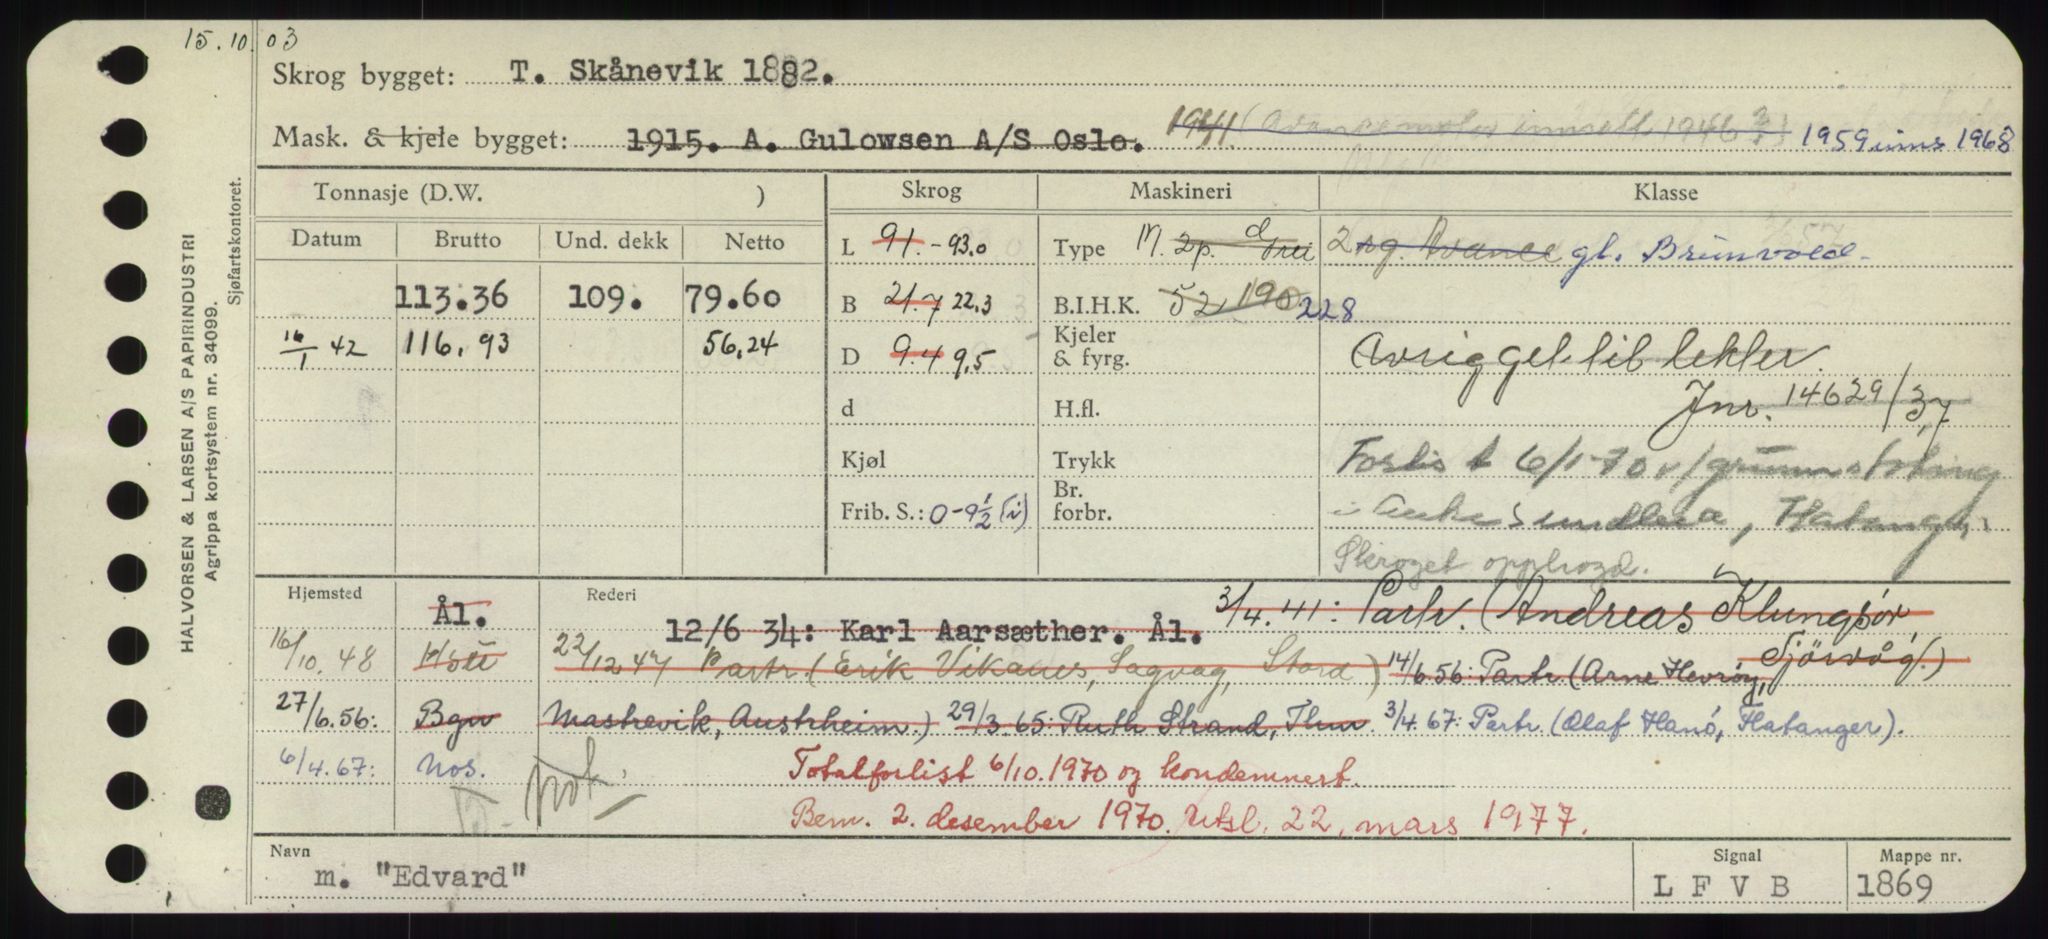 15.10.03
Skrog bygget: T. Skånevik 1882.
Mask. & kjele bygget: 1915. A. Gulowsen A/S Oslo. 1941. (Avancemotor innsatt 1946) 1959 inns 1968
Tonnasje (D.W. ) Skrog Maskineri Klasse
Datum Brutto Und. dekk Netto L 91.- 93.0 Type M. 2p. 2 sg. Avance gl. Brunvoll.
113.36 109. 79.60 B 21.7 22.3 B.I.H.K. 52 190 228
16/1 42 116.93 56.24 D 9.4 9.5 Kjeler & fyrg. Avrigget til lekter.
d H.fl. Jnr. 14629/37
Kjøl Trykk Forlis 6/1-70 v/grunnstøting
Frib. S.: 0-9½ (i) Br. forbr. i sundleia, Hatanger.
Skroget opphogd.
Hjemsted Ål. Rederi 12/6 34: Karl Aarsæther. Ål. 3/4.41: Partr. (Andreas Klungsör, Tjörvåg.)
16/10.48 22/12 47 Partr. (Erik Vikanes, Sagvag, Stord) 14/6 56: Partr (Arne Hevrøy,
27/6.56: Bgn Mastrevik, Austrheim.) 29/3.65: Ruth Strand, 3/4.67: Partr. (Olaf Hanö, Hatanger).
6/4.67: Nos. not. Totalforlist 6/10.1970 og kondemnert.
Bem. 2. desember 1970. Utsl. 22. mars 1977.
Navn m. "Edvard" Signal L F V B Mappe nr. 1869
HALVORSEN & LARSEN A/S PAPIRINDUSTRI
Agrippa kortsystem nr. 34099.
Sjøfartskontoret.